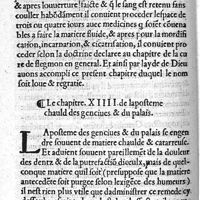 & apres louuerture faicte & q̃ le sang est retenu sans
couller habõdãment il conuient proceder lespace de
trois ou quatre iours auec medicines q̃ soiẽt cõtena
bles a raffraindre la matiere, & apres pour la mordifi
cation, incarnation, & sicatrisation, il conuient pro
ceder selon la doctrine declaree au chapitre de la cu
re de flegmon en general. Et ainsi par layde de Dieu
auons accompli ce present chapitre duquel le nom
soit loue & regratie.
¶ Le chapitre. XIIII. de laposteme
chauld des genciues & du palais.
LAposteme des genciues & du palais se engen
dre souuent de matiere chaulde & catarreuse.
Et aduient souuent pareillemẽt de la douleur
des dentz & de la putrefactiõ diceulx, mais de quel-
conque matiere quil soit (presuppose que la matiere
antecedẽte soit purgee selon lexigẽce des humeurs)
il nest rien plus vtile que dadministrer ce remede cy